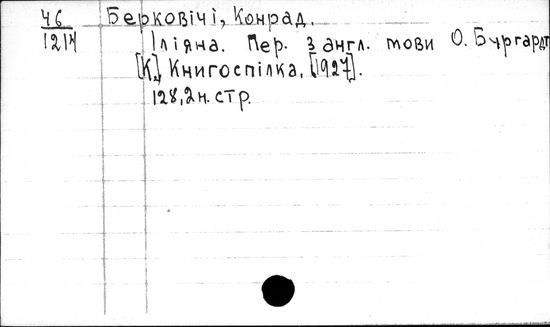 46 Берковічі, Конрад.
1214 Іліяна. Пер. з англ. мови О. Бургардт
[К], Книгоспілка, [1927].
128, 2 н. стр.